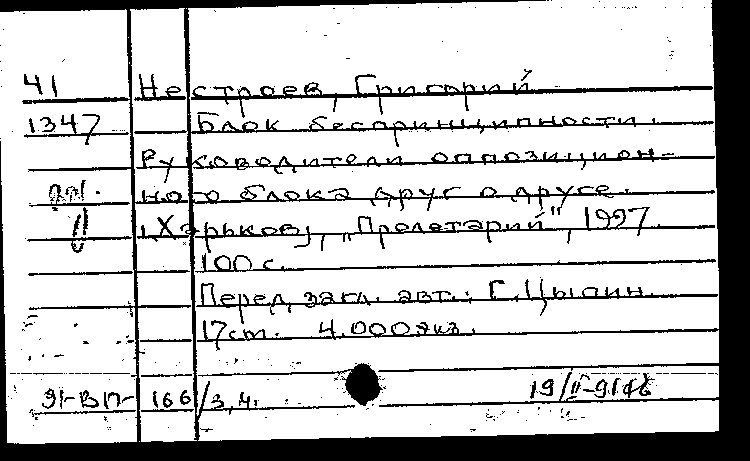 41 Нестроев, Григорий
1347 Блок беспринципности.
Руководители оппозицион-
ного блока друг о друге.
[Харьков], „Пролетарий", 1927.
100 с.
Перед загл. авт.: Г. Цыпин.
17 cm. 4.000 экз.
91-ВП- 166/3,4. 19/II-91